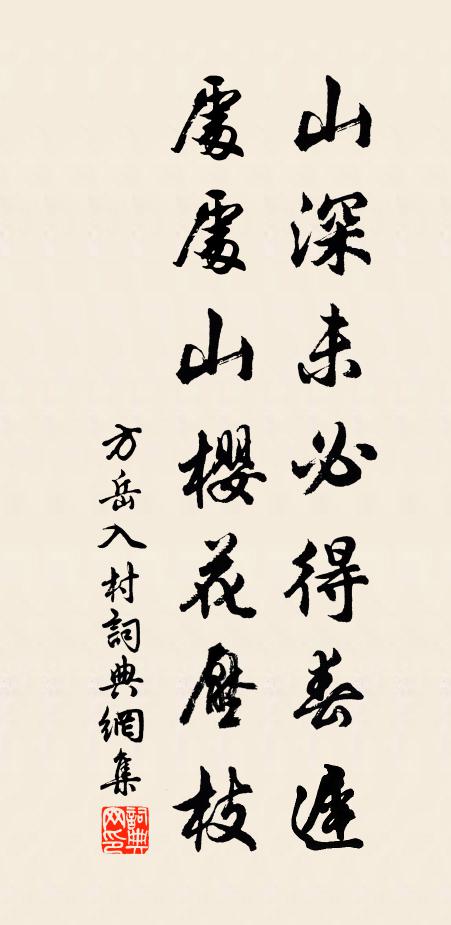 山深未必得春遲
處處山櫻花壓枝
方岳入村詞典網集
詞典網印